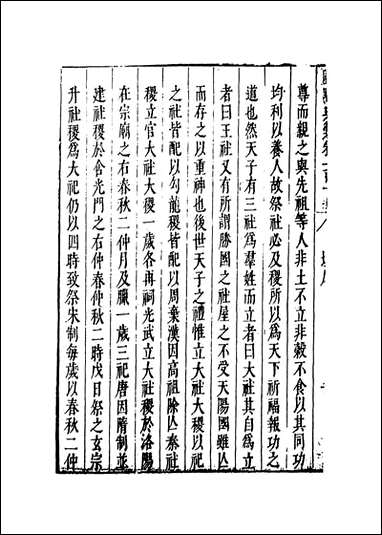 尊而親之與先祖等人非土不立非穀不食以其同功
均利以養人故祭社必及稷所以為天下祈福報功之
道也然天子有三社為羣姓而立者曰大社其自為立
者曰王社又有所謂勝國之社屋之不受天陽國雖亾
而存之以重神也後世天子之禮惟立大社大稷以祀
之社皆配以勾龍稷皆配以周棄漢因高祖除亾秦社
稷立官大社大稷一歲各再祠光武立大社稷於洛陽
在宗廟之右春秋二仲月及臘一歲三祀唐因隋制並
建社稷於含光門之右仲春仲秋二時戊日祭之玄宗
升社稷為大祀仍以四時致祭宋制每歲以春秋二仲